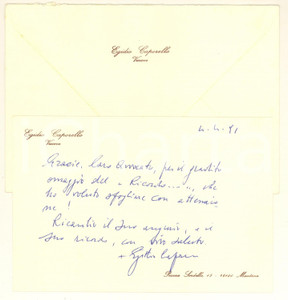 Egidio Caporello
Vescovo
Egidio Caporello
Vescovo
4.4.91
Grazie, Caro Avvocato, per il gradito
omaggio del "Ricordo.....", che
ho voluto sfogliare con attenzione
Ricambio il Suo augurio, e il
Suo ricordo, con vivo saluto.
+ Egidio Caporello
Piazza Sordello, 15 - 46100 Mantova